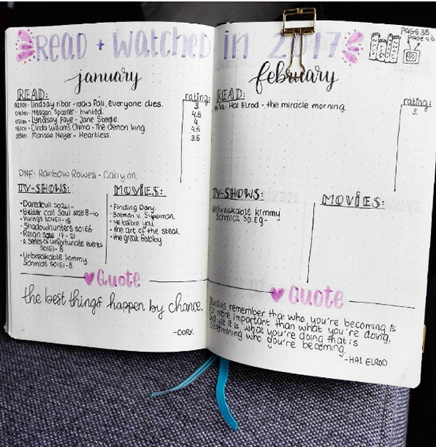 Read + watched in 2017
PAGE 35
page 46
january
READ:
rating:
Lindsay ribar - rocks fall, Everyone dies. 3.
Meagan Spooner - Hunted. 4.5
Lyndsay Faye - Jane Steele. 4
Cinda Williams Chima - The demon king. 4.5
Marissa Meyer - Heartless. 3.5
DNF: Rainbow Rowell - Carry on.
TV-SHOWS:
Daredevil
Better call Saul 8-10
Vikings
Shadowhunters
Reign 17-21
A series of unfortunate events
Unbreakable kimmy
Schmidt
MOVIES:
Finding Dory.
Batman v. Superman.
Me before you.
the art of the steal.
the great Gatsby
Quote
the best things happen by chance.
february
READ:
rating:
Hal Elrod - the miracle morning. 3.
TV-SHOWS:
Unbreakable kimmy
Schmidt
MOVIES:
Quote
Always remember that who you're becoming is
far more important than what you're doing,
and yet it is what you're doing that is
determining who you're becoming.
-HAL ELROD